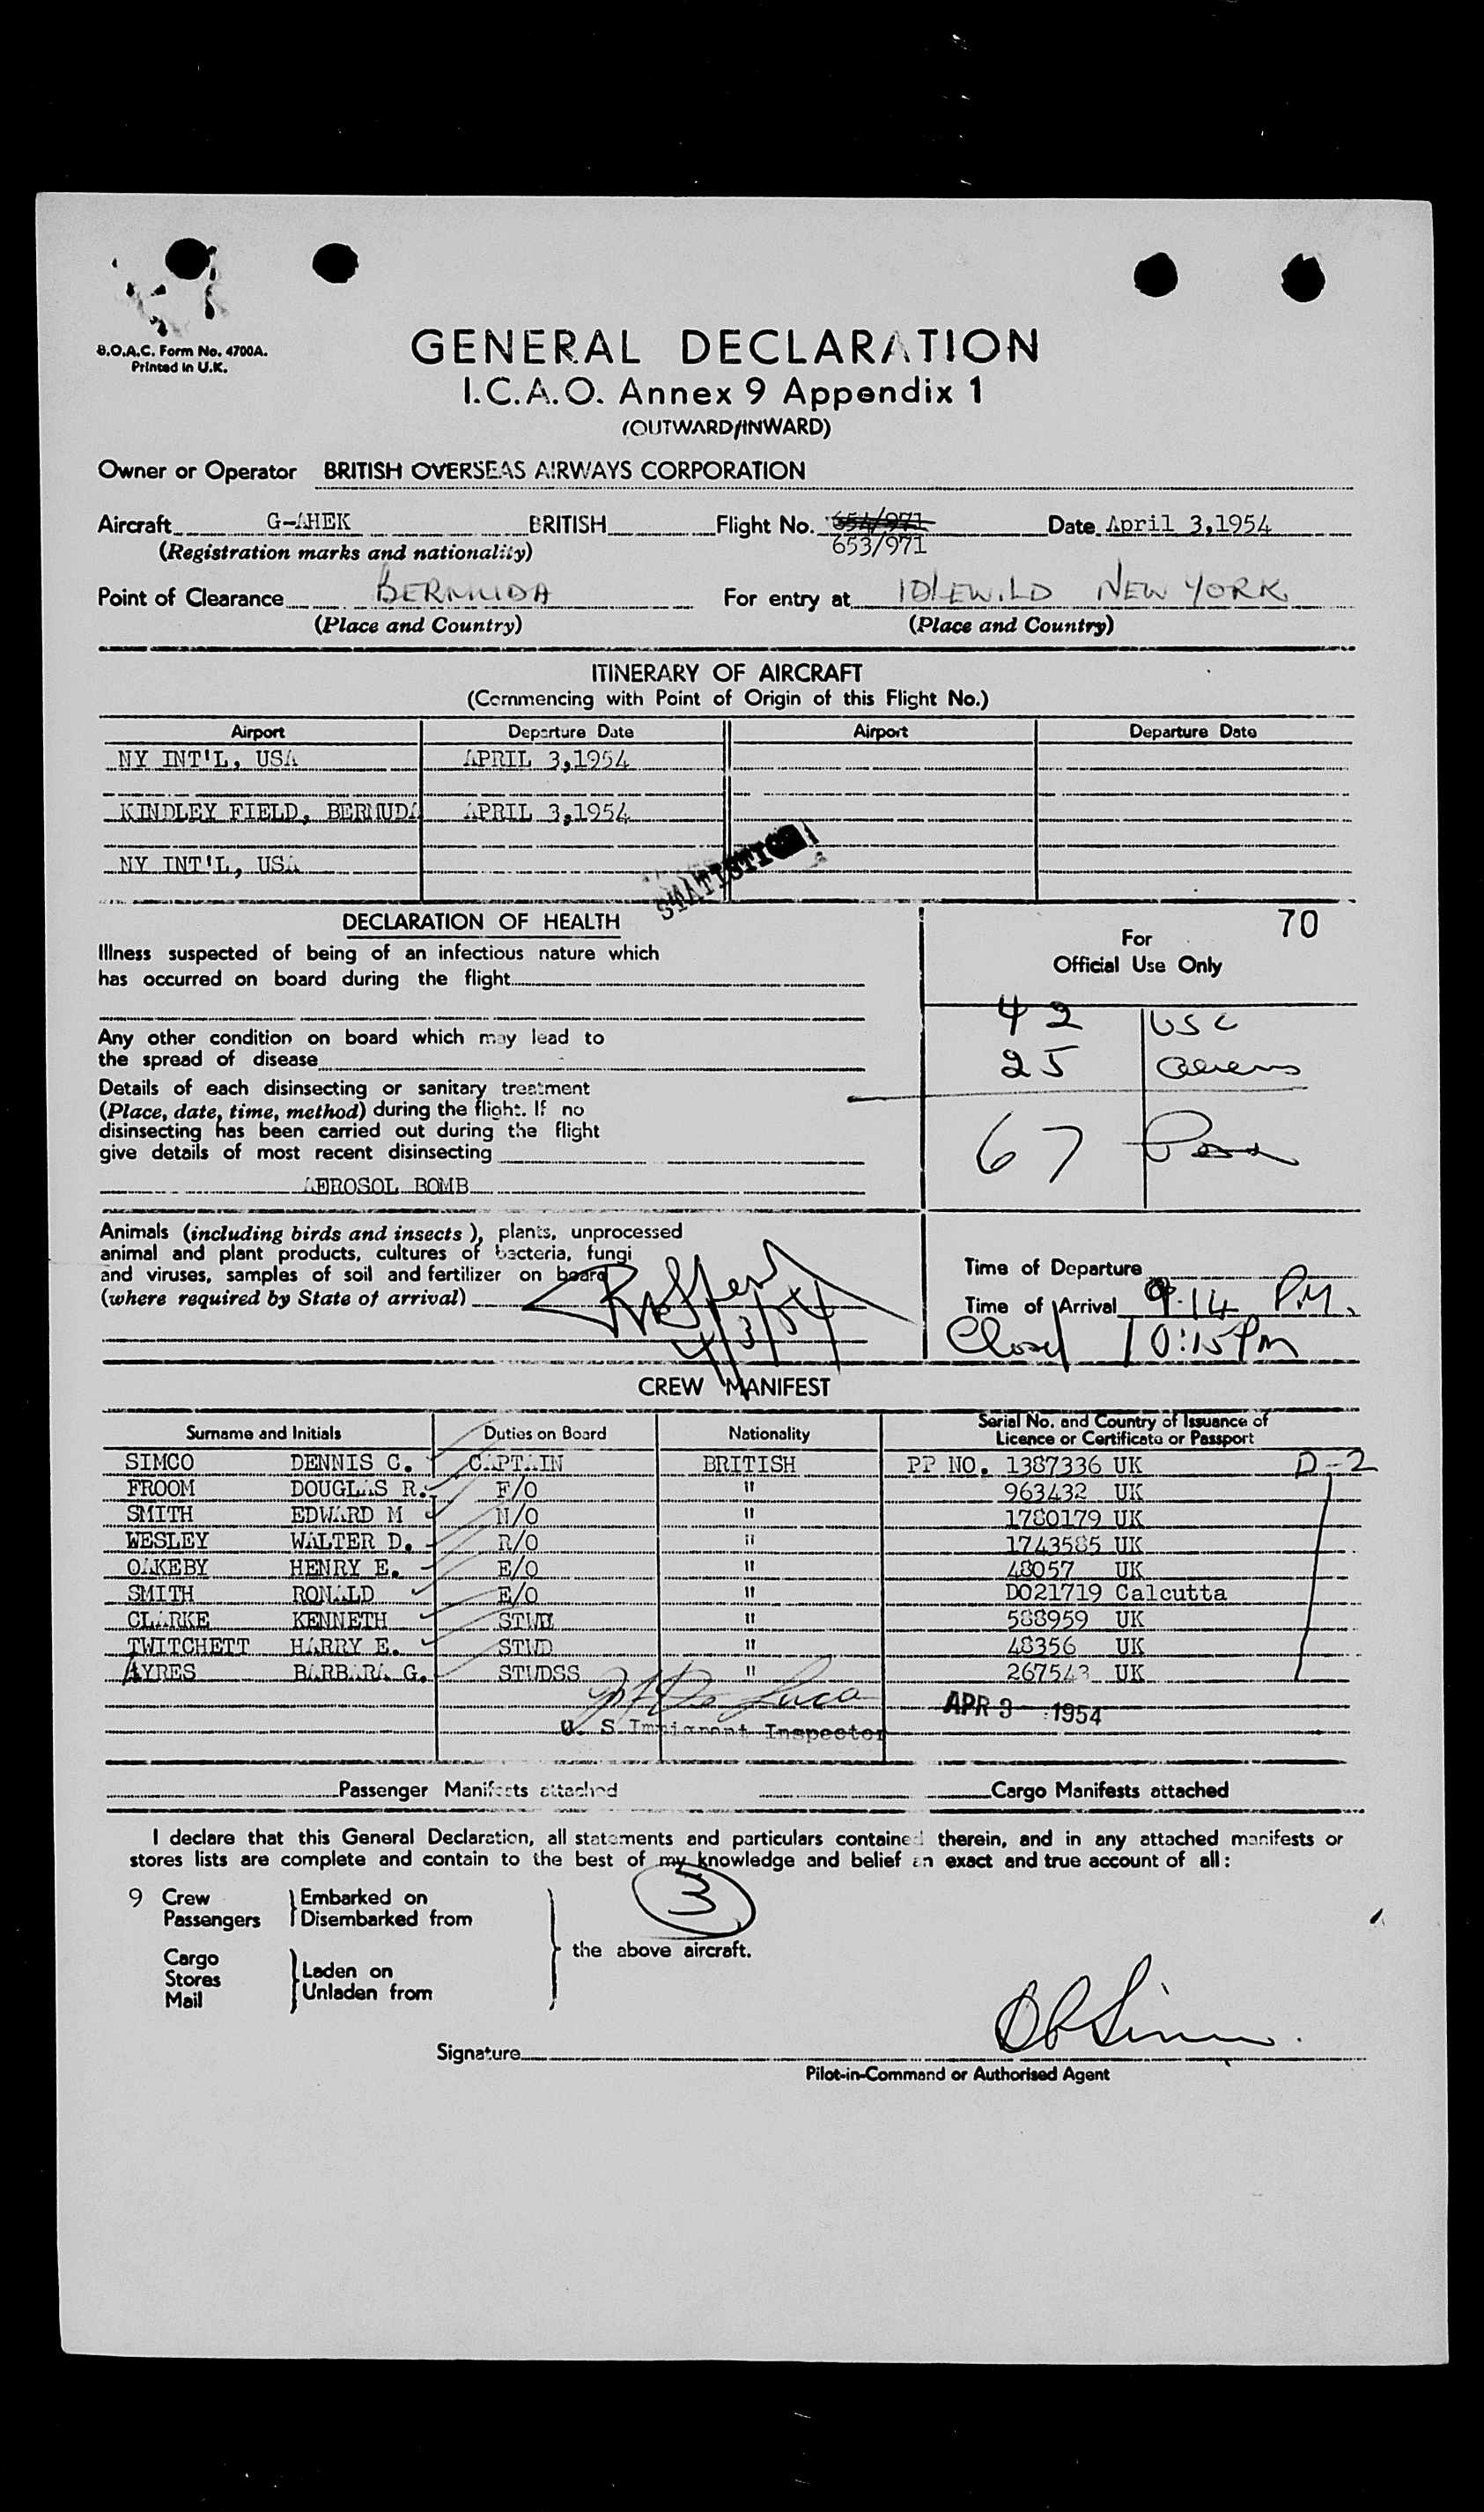 B.O.A.C. Form No. 4700A.
Printed in U.K.
GENERAL DECLARATION
I.C.A.O. Annex 9 Appendix 1
(OUTWARD/INWARD)
Owner or Operator BRITISH OVERSEAS AIRWAYS CORPORATION
Aircraft G-AHEK BRITISH Flight No. 654/971 Date April 3,1954
(Registration marks and nationality) 653/971
Point of Clearance BERMUDA For entry at IDLEWILD NEW YORK
(Place and Country) (Place and Country)
ITINERARY OF AIRCRAFT
(Commencing with Point of Origin of this Flight No.)
Airport Departure Date Airport Departure Date
NY INT'L, USA APRIL 3,1954
KINDLEY FIELD, BERMUDA APRIL 3,1954
NY INT'L, USA
DECLARATION OF HEALTH
70
Illness suspected of being of an infectious nature which
has occurred on board during the flight
For
Official Use Only
Any other condition on board which may lead to
the spread of disease
42 USC
25 Aliens
Details of each disinsecting or sanitary treatment
(Place, date, time, method) during the flight. If no
disinsecting has been carried out during the flight
give details of most recent disinsecting
67
AEROSOL BOMB
Animals (including birds and insects ), plants, unprocessed
animal and plant products, cultures of bacteria, fungi
and viruses, samples of soil and fertilizer on board
(where required by State of arrival)
4/3/54
Time of Departure
Time of Arrival 9.14 P.M.
Closed 10:15 Pm
CREW MANIFEST
Surname and Initials Duties on Board Nationality Serial No. and Country of Issuance of
Licence or Certificate or Passport
SIMCO DENNIS C. CAPTAIN BRITISH PP NO. 1387336 UK D-2
FROOM DOUGLAS R. F/O " 963432 UK
SMITH EDWARD M N/O " 1780179 UK
WESLEY WALTER D. R/O " 1743585 UK
OAKEBY HENRY E. E/O " 48057 UK
SMITH RONALD E/O " D021719 Calcutta
CLARKE KENNETH STWD " 588959 UK
TWITCHETT HARRY E. STWD " 48356 UK
AYRES BARBARA G. STWDSS " 267543 UK
APR 3 1954
U. S. Immigrant Inspector
Passenger Manifests attached Cargo Manifests attached
I declare that this General Declaration, all statements and particulars contained therein, and in any attached manifests or
stores lists are complete and contain to the best of my knowledge and belief an exact and true account of all:
3
9 Crew Embarked on
Passengers Disembarked from
the above aircraft.
Cargo
Stores Laden on
Mail Unladen from
Signature
Pilot-in-Command or Authorised Agent